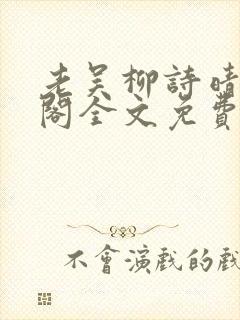 老吴柳詩晴
閣全文免費
不會演戲的戲